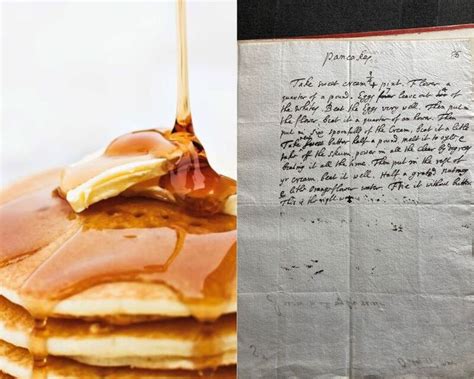 Pancakes
Take sweet cream 3/4 pint. Flower a
quarter of a pound. Eggs four leave out two of
the whites. Beat the Eggs very well. Then put in
the flower, beat it a quarter of an hower. Then
put in six spoonfulls of the Cream, beat it a litle
Take sweet butter half a pound melt it to oyle, &
take off the skum, power in all the clear by degrees
beating it all the time. Then put in the rest of
yr cream beat it well. Half a grated nutmeg
& litle orangeflower water. Frie it without butter.
This is the right way